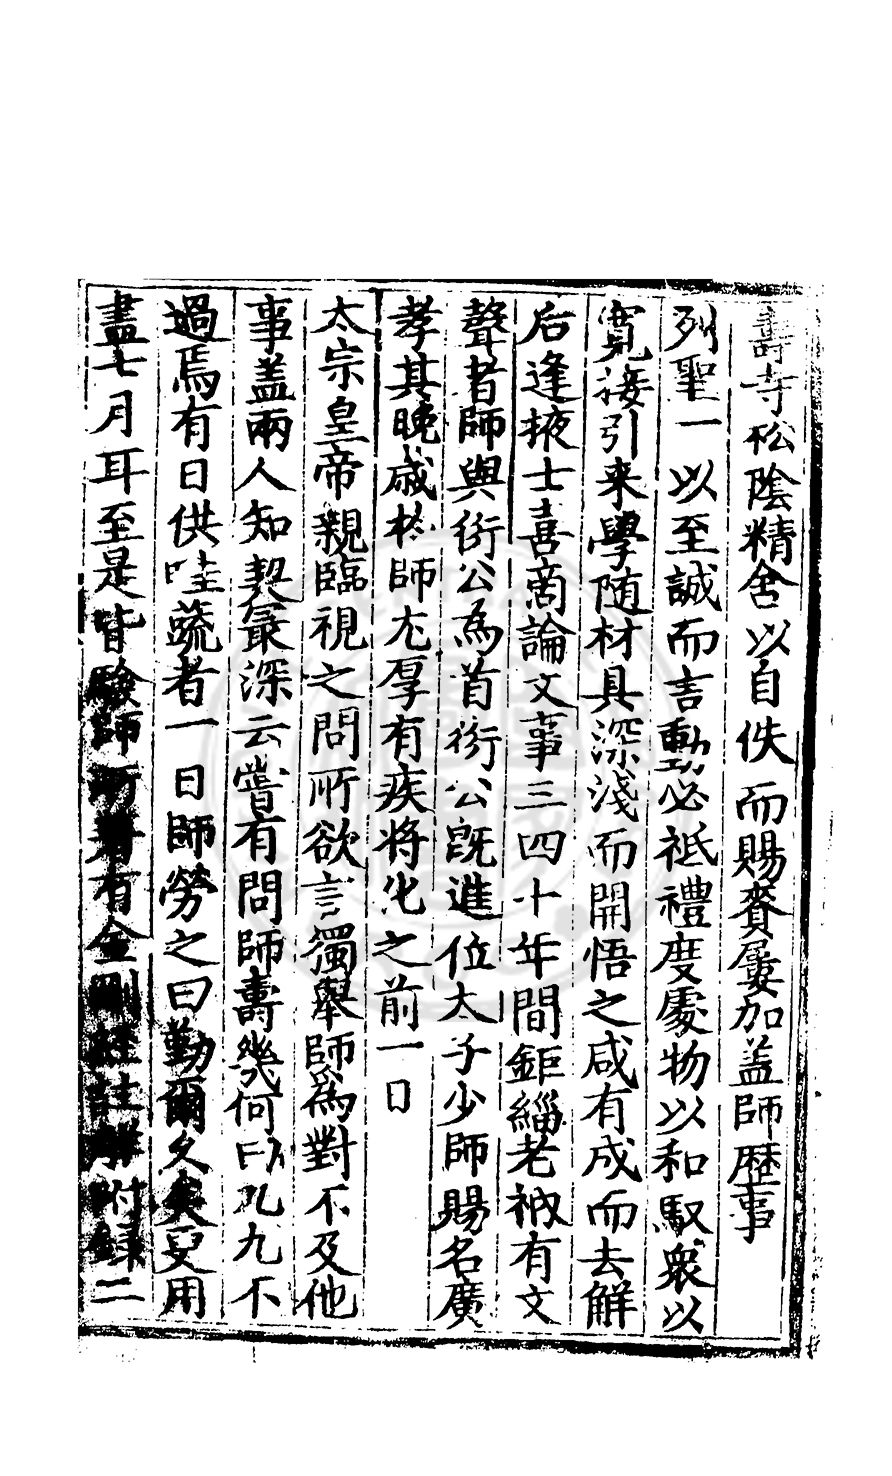 壽寺松陰精舍以自佚而賜賚屢加盖師歴事
列聖一以至誠而言動必祗禮度處物以和馭衆以
寛接引来學随材具深淺而開悟之咸有成而去解
后逢掖士喜商論文事三四十年間鉅緇老衲有文
聲者師與衍公為首衍公既進位太子少師賜名廣
孝其晚歲於師尤厚有疾将化之前一日
太宗皇帝親臨視之問所欲言獨舉師爲對不及他
事盖兩人知契冣深云嘗有問師壽幾何曰八九九不
過焉有日供蔬者一日師勞之曰勤爾久矣叓用
盡七月耳至是皆驗師所著有金剛經註解附録二